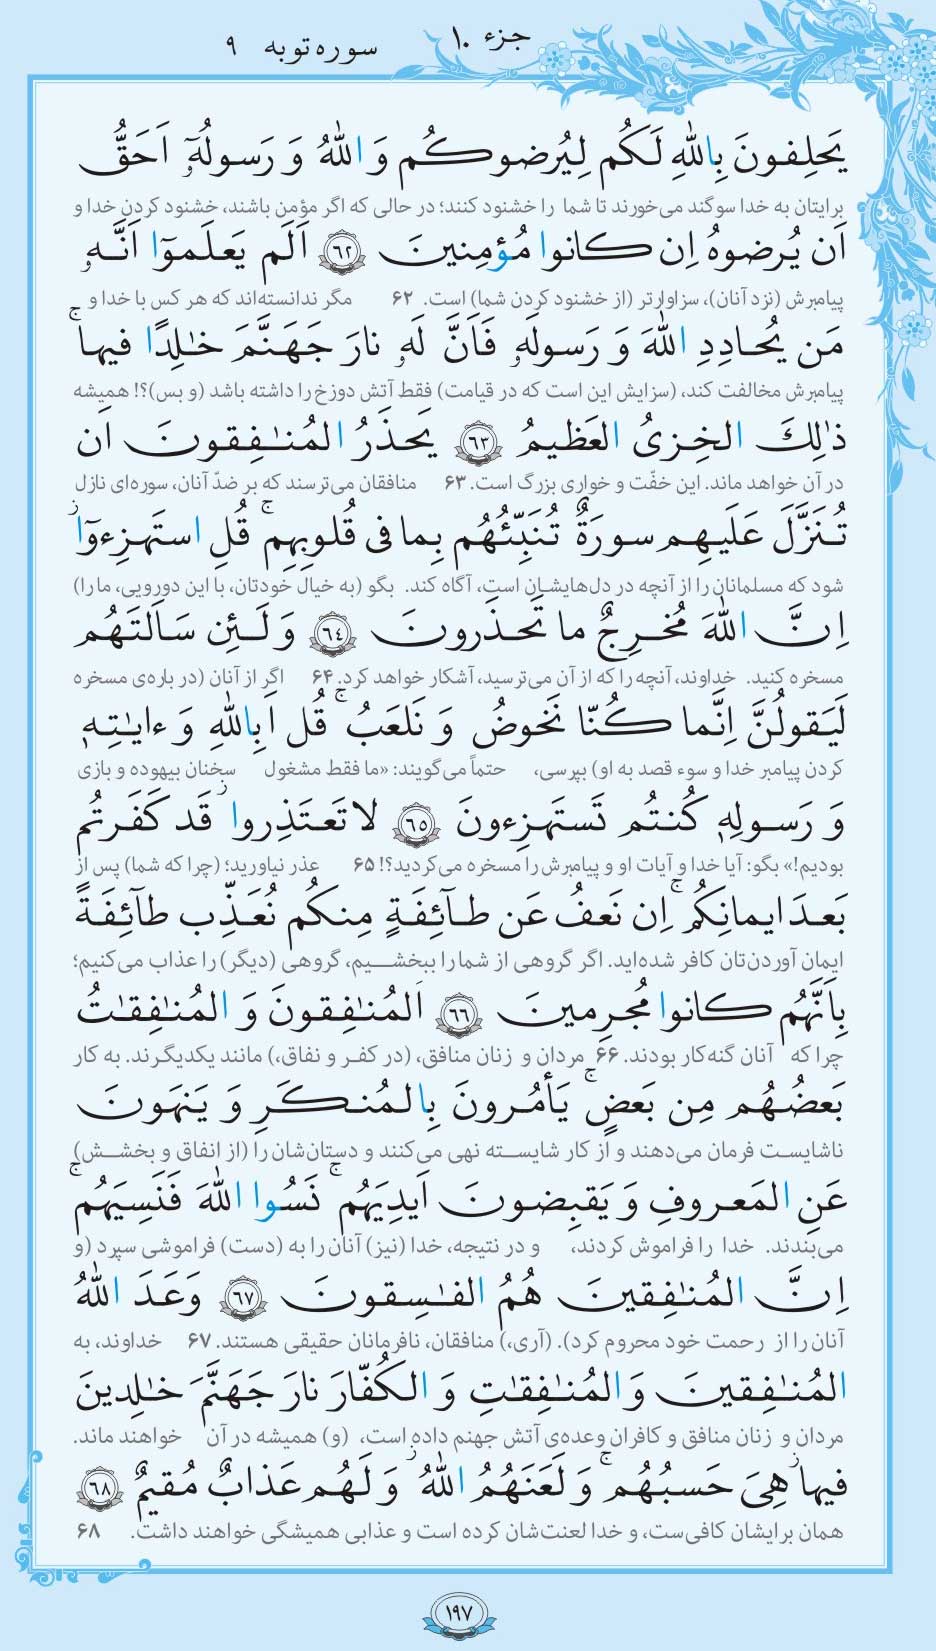 جزء ۱۰
سوره توبه ۹
يَحلِفونَ بِاللّٰهِ لَكُم لِيُرضوكُم وَ اللّٰهُ وَ رَسولُهٗٓ اَحَقُّ
برایتان به خدا سوگند می‌خورند تا شما را خشنود کنند؛ در حالی که اگر مؤمن باشند، خشنود کردن خدا و
اَن يُرضوهُ اِن كانوا مُؤمِنينَ ﴿٦٢﴾ اَلَم يَعلَموٓا اَنَّهٗ
پیامبرش (نزد آنان)، سزاوارتر (از خشنود کردن شما) است. ۶۲ مگر ندانسته‌اند که هر کس با خدا و
مَن يُحادِدِ اللّٰهَ وَ رَسولَهٗ فَاَنَّ لَهٗ نارَ جَهَنَّمَ خٰلِدًا فيها ۚ
پیامبرش مخالفت کند، (سزایش این است که در قیامت) فقط آتش دوزخ را داشته باشد (و بس)؟! همیشه
ذٰلِكَ الخِزىُ العَظيمُ ﴿٦٣﴾ يَحذَرُ المُنٰفِقونَ اَن
در آن خواهد ماند. این خفّت و خواری بزرگ است. ۶۳ منافقان می‌ترسند که بر ضدّ آنان، سوره‌ای نازل
تُنَزَّلَ عَلَيهِم سورَةٌ تُنَبِّئُهُم بِما فى قُلوبِهِم ۚ قُلِ استَهزِءوٓا ز
شود که مسلمانان را از آنچه در دل‌هایشان است، آگاه کند. بگو (به خیال خودتان، با این دورویی، ما را)
اِنَّ اللّٰهَ مُخرِجٌ ما تَحذَرونَ ﴿٦٤﴾ وَ لَئِن سَاَلتَهُم
مسخره کنید. خداوند، آنچه را که از آن می‌ترسید، آشکار خواهد کرد. ۶۴ اگر از آنان (درباره‌ی مسخره
لَيَقولُنَّ اِنَّما كُنّا نَخوضُ وَ نَلعَبُ ۚ قُل اَبِاللّٰهِ وَ ءايٰتِهٖ
کردن پیامبر خدا و سوء قصد به او) بپرسی، حتماً می‌گویند: «ما فقط مشغول سخنان بیهوده و بازی
وَ رَسولِهٖ كُنتُم تَستَهزِءونَ ﴿٦٥﴾ لا تَعتَذِروا ز قَد كَفَرتُم
بودیم!» بگو: آیا خدا و آیات او و پیامبرش را مسخره می‌کردید؟! ۶۵ عذر نیاورید؛ (چرا که شما) پس از
بَعدَ ايمانِكُم ۚ اِن نَعفُ عَن طآئِفَةٍ مِنكُم نُعَذِّب طآئِفَةً
ایمان آوردن‌تان کافر شده‌اید. اگر گروهی از شما را ببخشیم، گروهی (دیگر) را عذاب می‌کنیم؛
بِاَنَّهُم كانوا مُجرِمينَ ﴿٦٦﴾ اَلمُنٰفِقونَ وَ المُنٰفِقٰتُ
چرا که آنان گنه‌کار بودند. ۶۶ مردان و زنان منافق، (در کفر و نفاق،) مانند یکدیگرند. به کار
بَعضُهُم مِن بَعضٍ ۚ يَأمُرونَ بِالمُنكَرِ وَ يَنهَونَ
ناشایست فرمان می‌دهند و از کار شایسته نهی می‌کنند و دستان‌شان را (از انفاق و بخشش)
عَنِ المَعروفِ وَ يَقبِضونَ اَيدِيَهُم ۚ نَسُوا اللّٰهَ فَنَسِيَهُم ۚ
می‌بندند. خدا را فراموش کردند، و در نتیجه، خدا (نیز) آنان را به (دست) فراموشی سپرد (و
اِنَّ المُنٰفِقينَ هُمُ الفٰسِقونَ ﴿٦٧﴾ وَعَدَ اللّٰهُ
آنان را از رحمت خود محروم کرد). (آری،) منافقان، نافرمانان حقیقی هستند. ۶۷ خداوند، به
المُنٰفِقينَ وَ المُنٰفِقٰتِ وَ الكُفّارَ نارَ جَهَنَّمَ خٰلِدينَ
مردان و زنان منافق و کافران وعده‌ی آتش جهنم داده است، (و) همیشه در آن خواهند ماند.
فيها ز هِىَ حَسبُهُم ۚ وَ لَعَنَهُمُ اللّٰهُ ز وَ لَهُم عَذابٌ مُقيمٌ ﴿٦٨﴾
همان برایشان کافی‌ست، و خدا لعنت‌شان کرده است و عذابی همیشگی خواهند داشت. ۶۸
۱۹۷